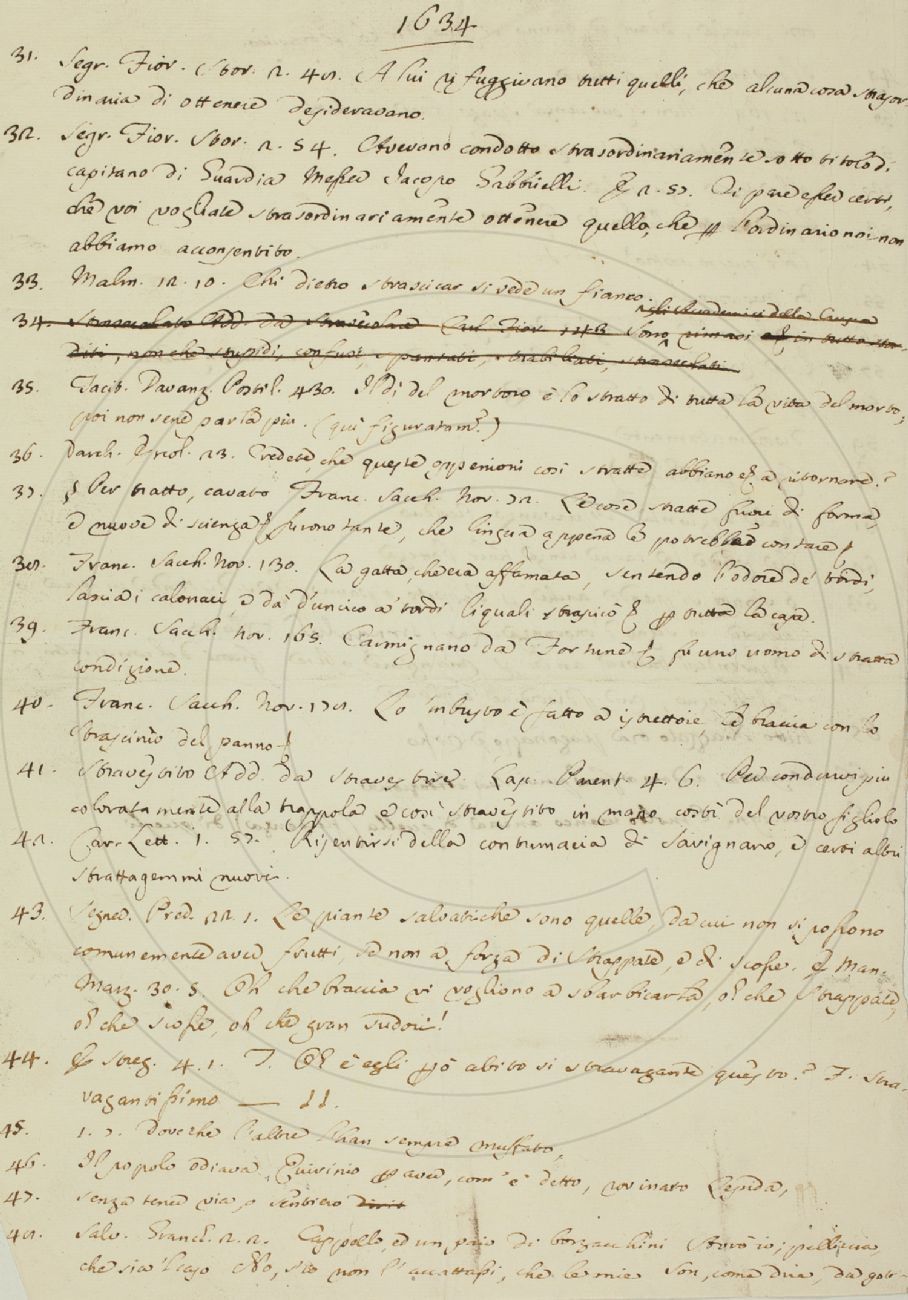 1634
31. Segr. Fior. Stor. 2. 48. A lui rifuggivano tutti quelli, che alcuna cosa straor-
dinaria di ottenere desideravano.
32. Segr. Fior. Stor. 2. 54. Avevano condotto strasordinariamente sotto titolo di
capitano di Guardia Messer Jacopo Gabbrielli. E 2. 57. Ci pare esser certi,
che voi vogliate strasordinariamente ottenere quello, che per l'ordinario noi non
abbiamo acconsentito.
33. Malm. 12. 10. Chi dietro strascicar si vede un fianco.
negli Accademici della Crusca
34. Strasecolato Add. da Strasecolare Fior. 146 Sono rimasi in tutto sta-
diti, non che stupidi, confusi, spantati, strabiliati, strasecolati.
35. Tacit. Davanz. Postil. 430. Il dì del mortoro è lo stratto di tutta la vita del morto;
poi non sene parla più. (qui figuratam.e)
36. Varch. Ercol. 23. Credete, che queste oppenioni così stratte abbiano a ritornare?
37. Per tratto, cavato Franc. Sacch. Nov. 72. Le cose stratte fuori di forma,
e nuove di scienza furono tante, che lingua appena le potrebbe contare
38. Franc. Sacch. Nov. 130. La gatta, che era affamata, sentendo l'odore de' tordi,
lascia i calonaci, e dà d'uncico a' tordi li quali strascicò per tutta la casa.
39. Franc. Sacch. Nov. 165. Carmignano da Fortune fu uno uomo di stratta
condizione.
40. Franc. Sacch. Nov. 178. Lo 'mbusto è fatto a istrettoie, le braccia con lo
strascinio del panno
41. Stravestito Add. da stravestire. Lap. Parent. 4. 6. Per condurvi più
coloratamente alla trappola e così stravestito in mano costì del vostro figliolo
42. Car. Lett. 1. 57. Risentirsi della contumacia di Savignano, e certi altri
strattagemmi nuovi.
43. Segner. Pred. 22. 1. Le piante salvatiche sono quelle, da cui non si possono
comunemente aver frutti, se non a forza di strappate, e di scosse. E Man.
Marz. 30. 3. Oh che braccia vi vogliono a sbarbicarla, oh che strappate,
oh che scosse, oh che gran sudori!
44. E Streg. 4. 1. T. Oh è egli però abito sì stravagante questo? F. Stra-
vagantissimo
45. 1. 7. Dove che l'altre l'han sempre muffato,
46. Il popolo odiava Quirinio per aver, com' è detto, rovinato Lepida,
47. senza tener via, o sentiero
48. Salv. Granch. 2. 2. Cappello, ed un paio di borzacchini Arrò io; pelliccia,
che sia 'l caso che non l'accattassi, che le mie son, come dire, da gott-